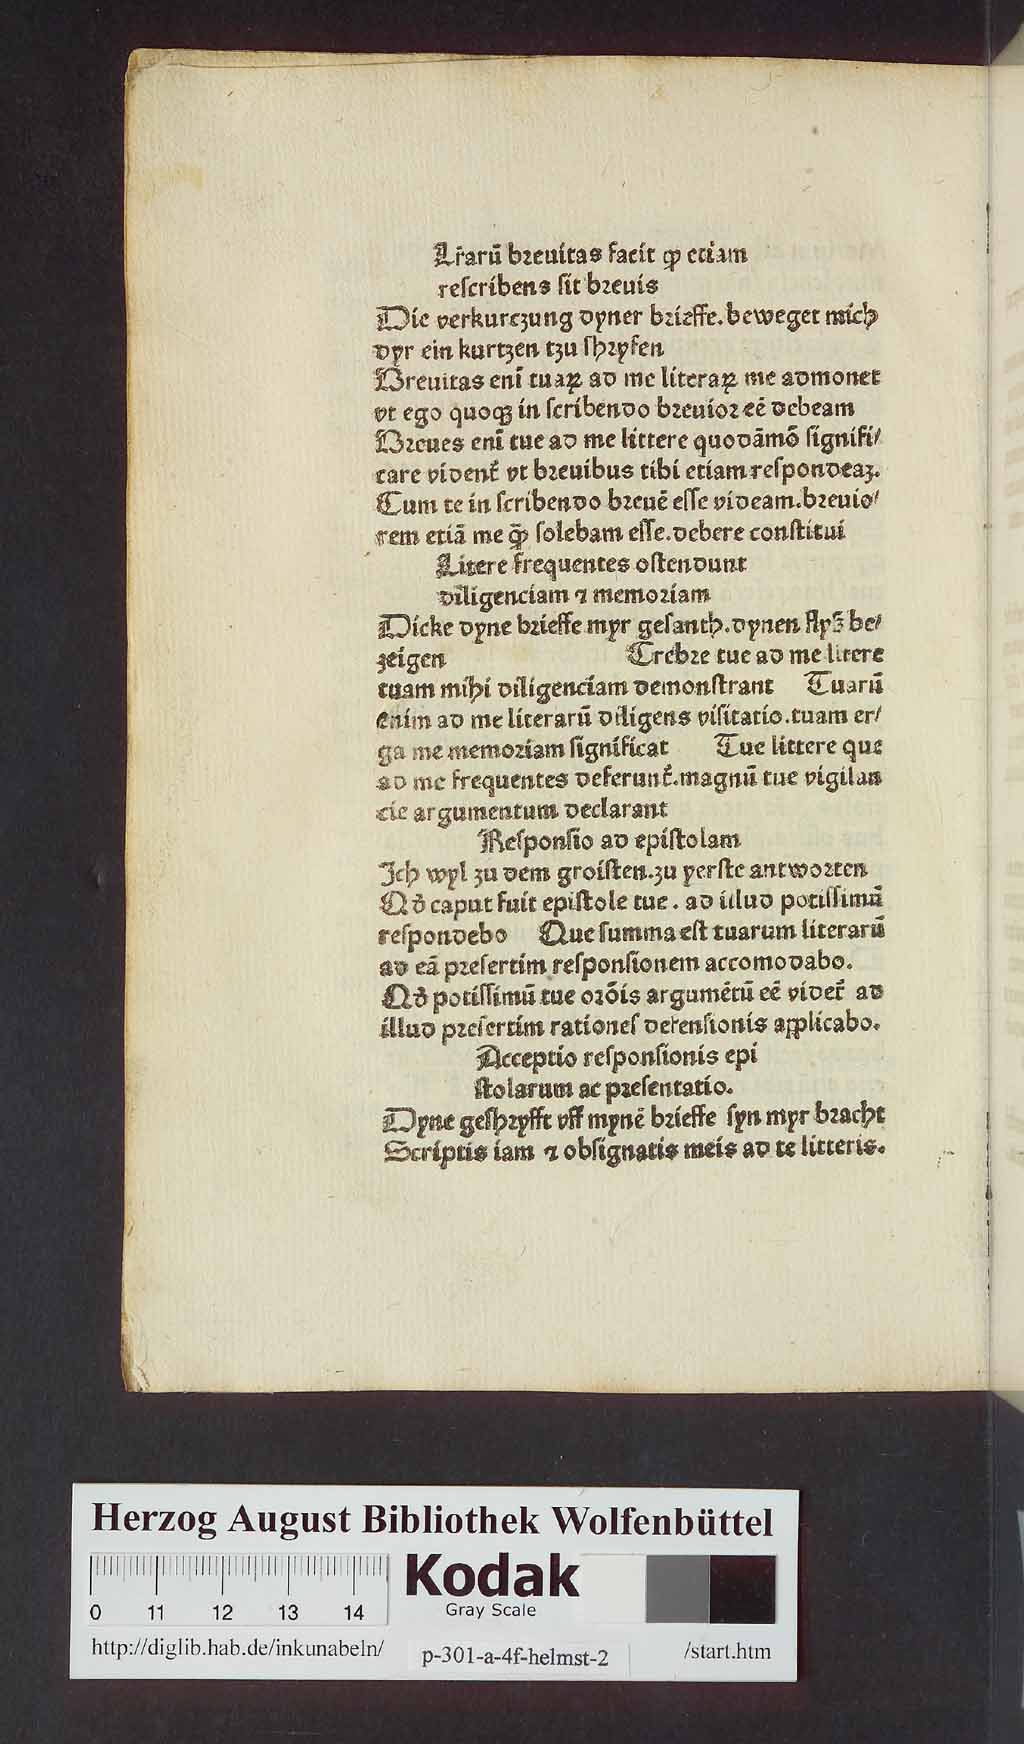 Lr̃arũ breuitas facit ꝙ etiam
reſcribens ſit breuis
Die verkurczung dyner brieffe.beweget mich
dyr ein kurtzen tzu ſhryfen
Breuitas enĩ tuaꝝ ad me literaꝝ me admonet
vt ego quoqꝫ in ſcribendo breuior eẽ debeam
Breues enĩ tue ad me littere quodãmõ ſignifi/
care vident̃ vt breuibus tibi etiam reſpondeaꝫ.
Cum te in ſcribendo breuẽ eſſe videam.breuio/
rem etiã me ꝙ̃ ſolebam eſſe.debere conſtitui
Litere frequentes oſtendunt
diligenciam ⁊ memoriam
Dicke dyne brieffe myr geſanth.dynen flyſꝫ be/
zeigen Crebre tue ad me litere
tuam mihi diligenciam demonſtrant Tuarũ
enim ad me literarũ diligens viſitatio.tuam er/
ga me memoriam ſignificat Tue littere que
ad me frequentes deferunt̃.magnũ tue vigilan
cie argumentum declarant
Reſponſio ad epiſtolam
Ich wyl zu dem groiſten.zu yerſte antworten
Qđ caput fuit epiſtole tue. ad illud potiſſimũ
reſpondebo Que ſumma eſt tuarum literarũ
ad eã preſertim reſponſionem accomodabo.
Qđ potiſſimũ tue orõis argumẽtũ eẽ videt̃ ad
illud preſertim rationeſ defenſionis applicabo.
Acceptio reſponſionis epi
ſtolarum ac preſentatio.
Dyne geſhryfft vff mynẽ brieffe ſyn myr bracht
Scriptis iam ⁊ obſignatis meis ad te litteris.
Herzog August Bibliothek Wolfenbüttel
Kodak
Gray Scale
0 11 12 13 14
http://diglib.hab.de/inkunabeln/ p-301-a-4f-helmst-2 /start.htm